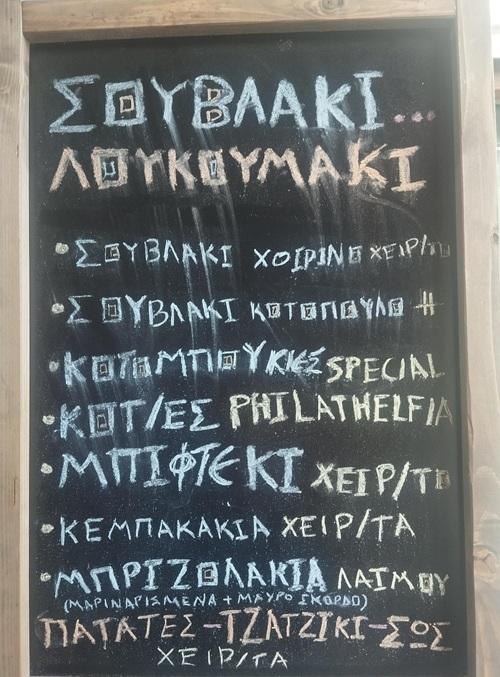 ΣΟΥΒΛΑΚΙ...
ΛΟΥΚΟΥΜΑΚΙ
• ΣΟΥΒΛΑΚΙ ΧΟΙΡΙΝΟ ΧΕΙΡ/ΤΟ
• ΣΟΥΒΛΑΚΙ ΚΟΤΟΠΟΥΛΟ #
• ΚΟΤΟΜΠΟΥΚΙΕΣ SPECIAL
• ΚΟΤ/ΕΣ PHILATHELFIA
• ΜΠΙΦΤΕΚΙ ΧΕΙΡ/ΤΟ
• ΚΕΜΠΑΚΑΚΙΑ ΧΕΙΡ/ΤΑ
• ΜΠΡΙΖΟΛΑΚΙΑ ΛΑΙΜΟΥ
(ΜΑΡΙΝΑΡΙΣΜΕΝΑ + ΜΑΥΡΟ ΣΚΟΡΔΟ)
ΠΑΤΑΤΕΣ-ΤΖΑΤΖΙΚΙ-ΣΩΣ
ΧΕΙΡ/ΤΑ